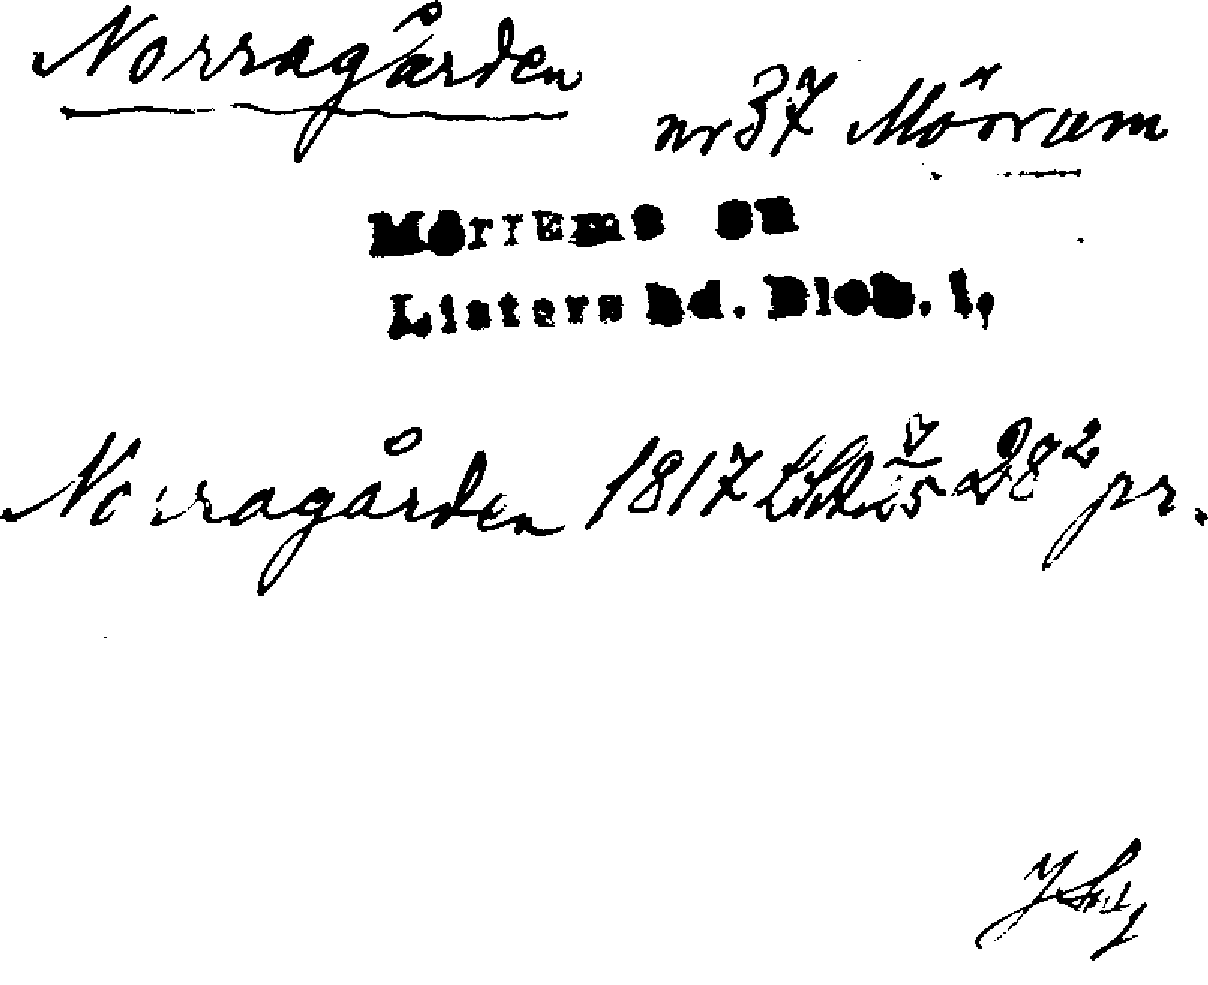 Norragården
nr 37 Mörrum
Mörrums sn
Listers hd. Blek. l.
Norragården 1817 7/25 282 pr.